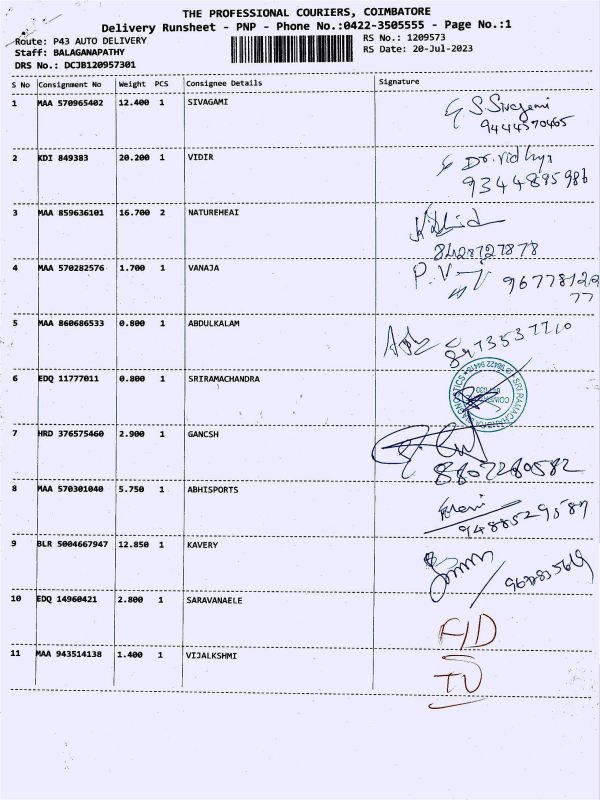 THE PROFESSIONAL COURIERS, COIMBATORE
Delivery Runsheet - PNP - Phone No.:0422-3505555 - Page No.:1
Route: P43 AUTO DELIVERY RS No.: 1209573
Staff: BALAGANAPATHY RS Date: 20-Jul-2023
DRS No.: DCJB120957301
S No Consignment No Weight PCS Consignee Details Signature
1 MAA 570965402 12.400 1 SIVAGAMI S. Sivagami
9444570465
2 KDI 849383 20.200 1 VIDIR Dr. vidhya
9344895986
3 MAA 859636101 16.700 2 NATUREHEAI
8428727878
4 MAA 570282576 1.700 1 VANAJA P.
96778122
77
5 MAA 860686533 0.800 1 ABDULKALAM
6 EDQ 11777011 0.800 1 SRIRAMACHANDRA
7 HRD 376575460 2.900 1 GANCSH
8807280582
8 MAA 570301040 5.750 1 ABHISPORTS
9488529587
9 BLR 5004667947 12.850 1 KAVERY
10 EDQ 14960421 2.800 1 SARAVANAELE F/D
11 MAA 943514138 1.400 1 VIJALKSHMI